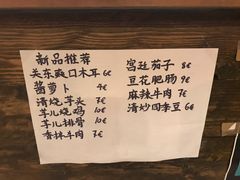 新品推荐
关东爽口木耳 6€
酱萝卜 4€
清烧芋头 7€
芋儿烧鸡 10€
芋儿排骨 10€
香林牛肉 7€
宫廷茄子 8€
豆花肥肠 9€
麻辣牛肉 7€
清炒四季豆 6€